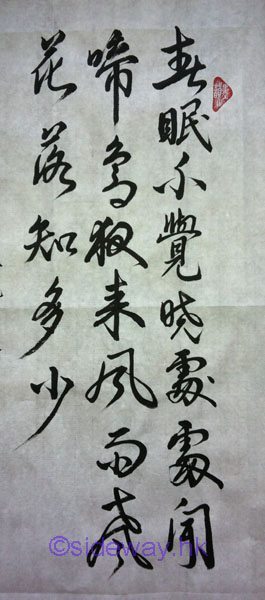 春眠不覺晓處處聞
啼鳥夜来風雨聲
花落知多少
©sideway.hk